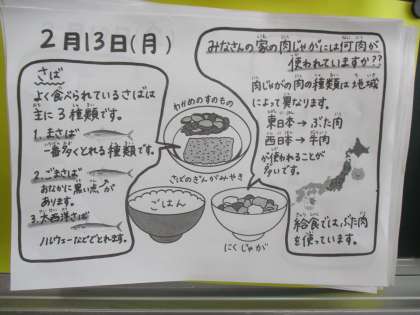 2月13日(月)
さば
よく食べられているさばは
主に3種類です。
1. まさば
一番多くとれる種類です。
2. ごまさば
おなかに黒い点が
あります。
3. 大西洋さば
ノルウェーなどでとれます。
わかめのすのもの
さばのぎんがみやき
ごはん
にくじゃが
みなさんの家の肉じゃがには何肉が
使われていますか??
肉じゃがの肉の種類は地域
によって異なります。
東日本→ぶた肉
西日本→牛肉
が使われることが
多いです。
給食では、ぶた肉
を使っています。